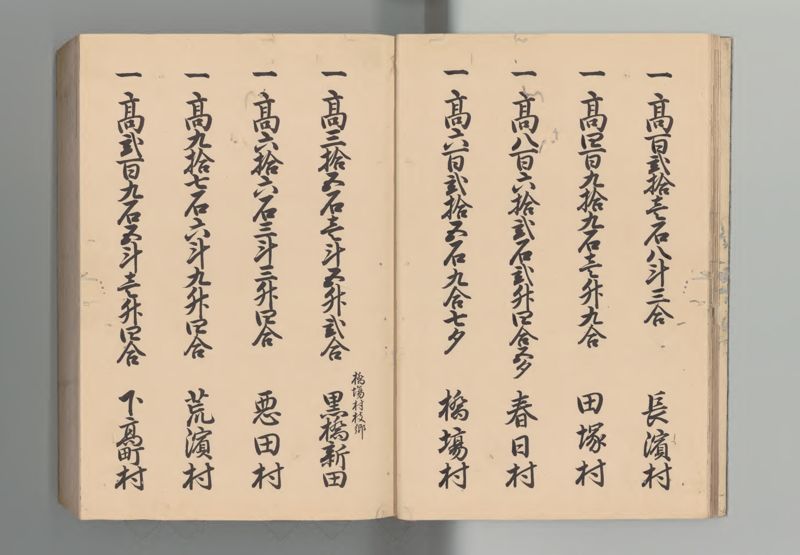 一高百弐拾壱石八斗三合 長濱村
一高四百九拾九石壱升九合 田塚村
一高八百六拾弐石弐升四合五夕 春日村
一高六百弐拾五石九合七夕 橋場村
橋場村枝郷
一高三拾五石壱斗五升弐合 黒橋新田
一高六拾六石三斗三升四合 悪田村
一高九拾七石六斗九升四合 荒濱村
一高弐百九石五斗壱升四合 下高町村